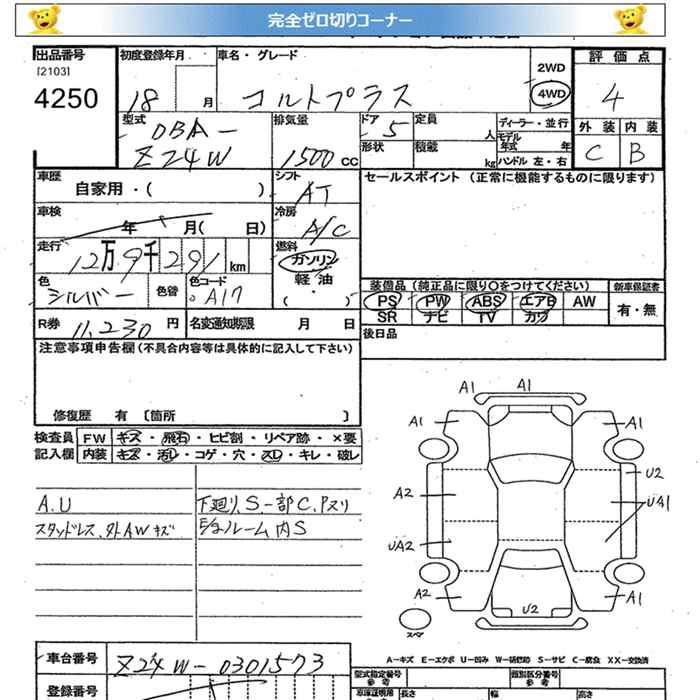 完全ゼロ切りコーナー
出品番号
[2103]
4250
初度登録年月
18 月
車名・グレード
コルトプラス
2WD
4WD
評価点
4
外装 内装
C B
型式
DBA-
Z24W
排気量
1500 cc
ドア 5
形状
定員 人
積載 kg
ディーラー・並行
モデル年式 年
ハンドル 左・右
車歴
自家用・( )
シフト
AT
セールスポイント (正常に機能するものに限ります)
車検
年 月( 日)
冷房
A/C
走行
12万9千291 km
燃料
ガソリン
軽油
( ・ )
色
シルバー
色替
色コード
A17
装備品(純正品に限り○をつけてください)
PS PW ABS エアB AW
SR ナビ TV カワ
新車保証書
有・無
R券 11,230 円
名変通知期限 月 日
後日品
注意事項申告欄(不具合内容等は具体的に記入して下さい)
修復歴 有 〔箇所 〕
検査員
記入欄
FW キズ・飛石・ヒビ割・リペア跡・×要
内装 キズ・汚レ・コゲ・穴・スレ・キレ・破レ
A.U
スタッドレス、外AWキズ
下廻リ、S一部C、Pヌリ
E/gルーム内S
A1 A1
A1 A1
U2
A2 UA1
UA2
A2 U2 A1
スペア
A-キズ E-エクボ U-凹み W-補修跡 S-サビ C-腐食 XX-交換済
車台番号
Z24W-0301573
登録番号
型式指定番号
参考
類別区分番号
参考
車庫証明用
参考
長さ 幅 高さ